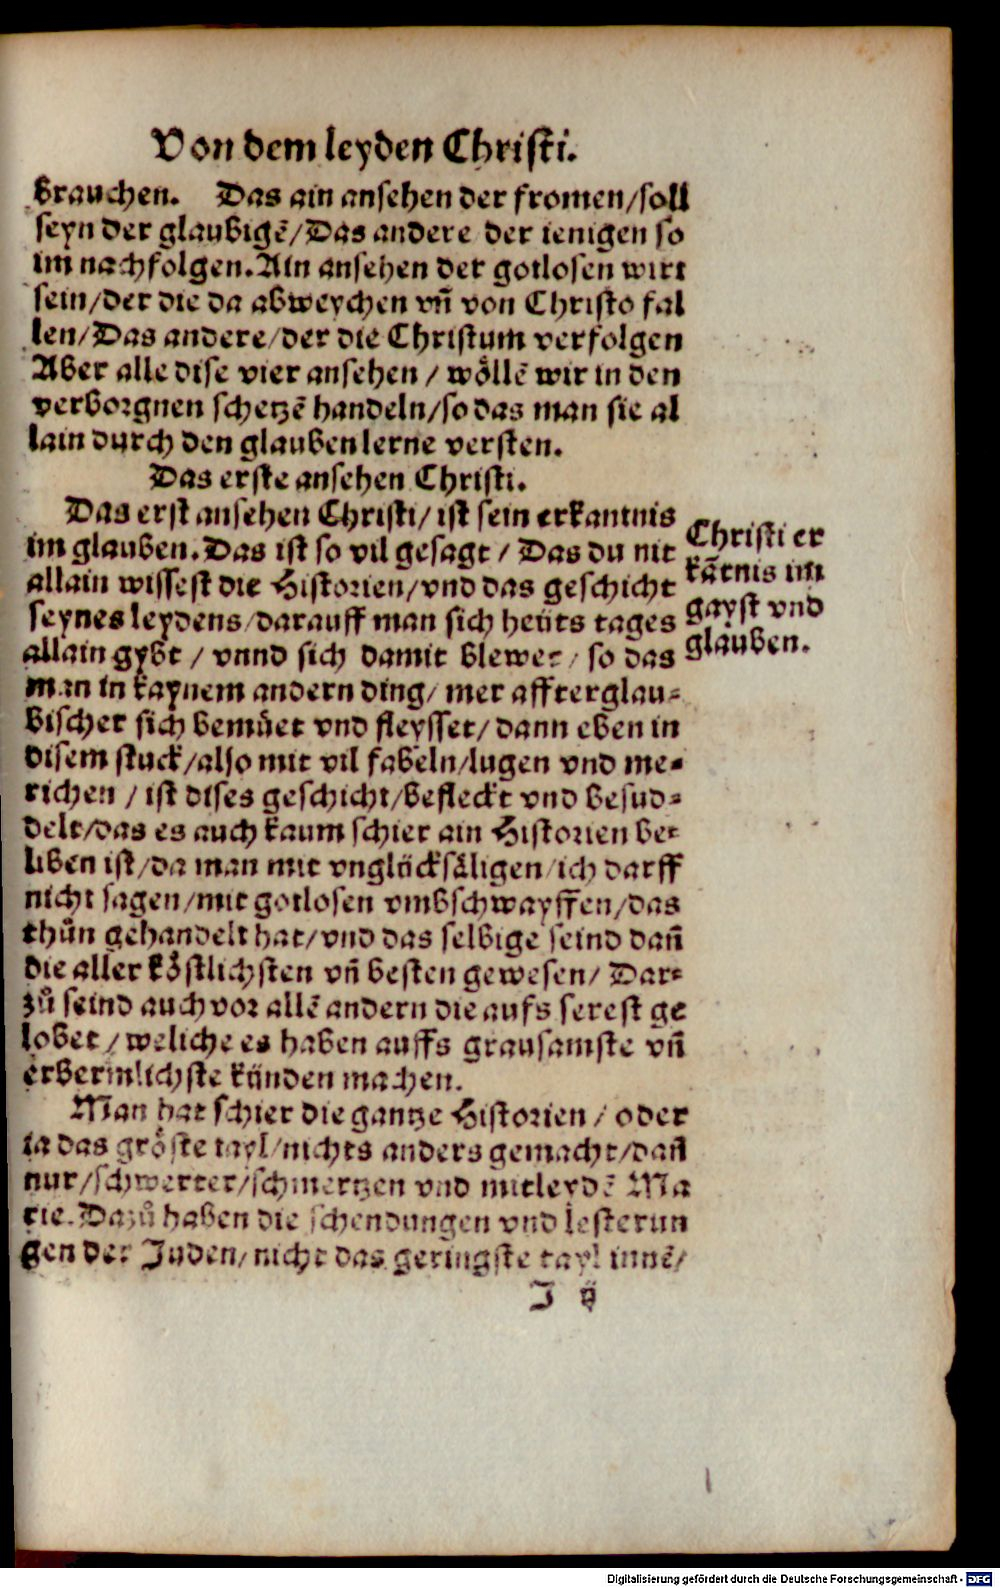 Von dem leyden Christi.
brauchen. Das ain ansehen der fromen/soll
seyn der glaubigẽ/Das andere der ienigen so
im nachfolgen. Ain ansehen der gotlosen wirt
sein/der die da abweychen vñ von Christo fal
len/Das andere/der die Christum verfolgen
Aber alle dise vier ansehen / wöllẽ wir in den
verborgnen schetzẽ handeln/so das man sie al
lain durch den glauben lerne versten.
Das erste ansehen Christi.
Das erst ansehen Christi/ ist sein erkantnis
im glauben. Das ist so vil gesagt / Das du nit
allain wissest die Historien/vnd das geschicht
seynes leydens/darauff man sich heüts tages
allain gybt / vnnd sich damit blewet/ so das
man in kaynem andern ding/ mer affterglau-
bischer sich bemüet vnd fleysset/ dann eben in
disem stuck/also mit vil fabeln/lugen vnd me-
richen / ist dises geschicht/befleckt vnd besud-
delt/das es auch kaum schier ain Historien be-
liben ist/da man mit vnglücksäligen/ich darff
nicht sagen/mit gotlosen vmbschwayffen/das
thůn gehandelt hat/vnd das selbige seind dañ
die aller köstlichsten vñ besten gewesen/ Dar-
zů seind auch vor allẽ andern die aufs serest ge
lobet / weliche es haben auffs grausamste vñ
erbermlichste künden machen.
Man hat schier die gantze Historien / oder
ia das gröste tayl/nichts anders gemacht/dañ
nur/schwerter/schmertzen vnd mitleydẽ Ma
rie. Dazů haben die schendungen vnd lesterun
gen der Juden/nicht das geringste tayl innẽ/
J ij
Christi er
kãtnis im
gayst vnd
glauben.
Digitalisierung gefördert durch die Deutsche Forschungsgemeinschaft - DFG